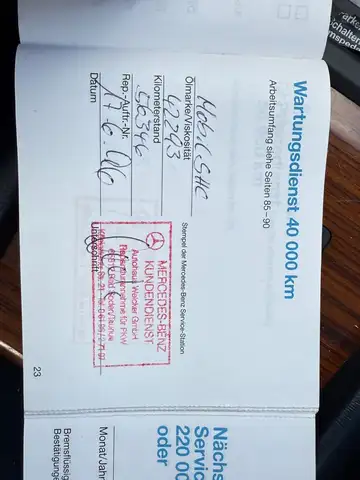 Wartungsdienst 40 000 km
Arbeitsumfang siehe Seiten 85–90
Mobil SHC
Ölmarke/Viskosität
42293
Kilometerstand
56346
Rep.-Auftr.-Nr.
17.6.06
Datum
Stempel der Mercedes-Benz Service-Station
MERCEDES-BENZ
KUNDENDIENST
Autohaus Weicker GmbH
für PKW
Unterschrift
23
Nächs
Servic
220 00
oder
Monat/Jahr
Bremsflüssig
Bestätigung